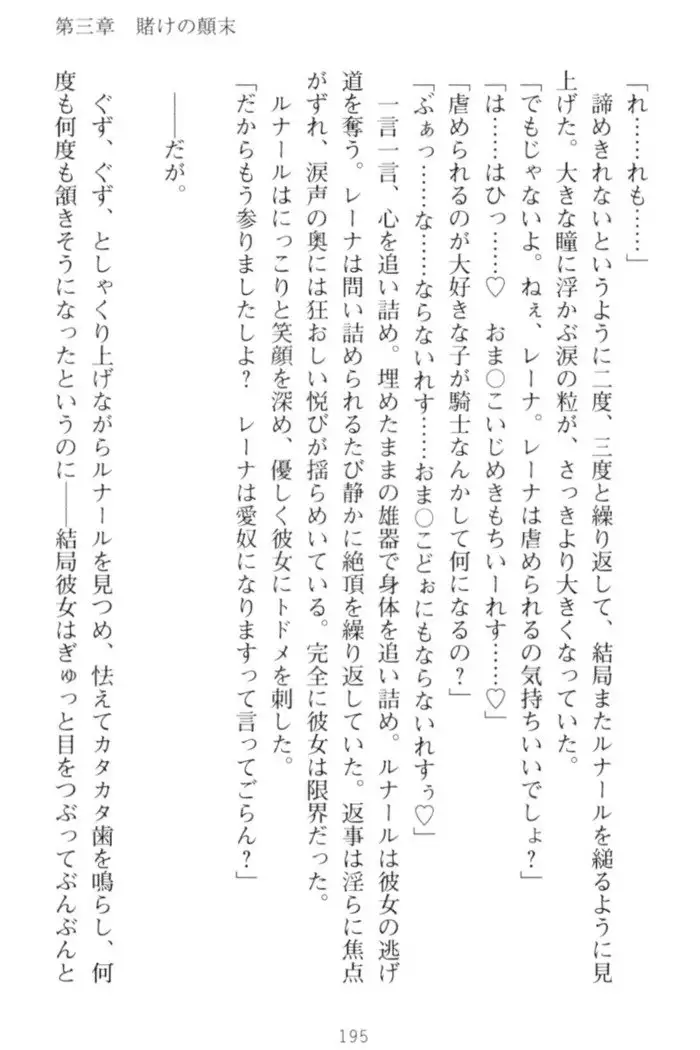 第三章　賭けの顛末
「れ……れも……」
　諦めきれないというように二度、三度と繰り返して、結局またルナールを縋るように見
上げた。大きな瞳に浮かぶ涙の粒が、さっきより大きくなっていた。
「でもじゃないよ。ねぇ、レーナ。レーナは虐められるの気持ちいいでしょ？」
「は……はひっ……♡　おま〇こいじめきもちいーれす……♡」
「虐められるのが大好きな子が騎士なんかして何になるの？」
「ぶぁっ……な……ならないれす……おま〇こどぉにもならないれすぅ♡」
　一言一言、心を追い詰め。埋めたままの雄器で身体を追い詰め。ルナールは彼女の逃げ
道を奪う。レーナは問い詰められるたび静かに絶頂を繰り返していた。返事は淫らに焦点
がずれ、涙声の奥には狂おしい悦びが揺らめいている。完全に彼女は限界だった。
　ルナールはにっこりと笑顔を深め、優しく彼女にトドメを刺した。
「だからもう参りましたしよ？　レーナは愛奴になりますって言ってごらん？」
――だが。
　ぐず、ぐず、としゃくり上げながらルナールを見つめ、怯えてカタカタ歯を鳴らし、何
度も何度も頷きそうになったというのに――結局彼女はぎゅっと目をつぶってぶんぶんと
195